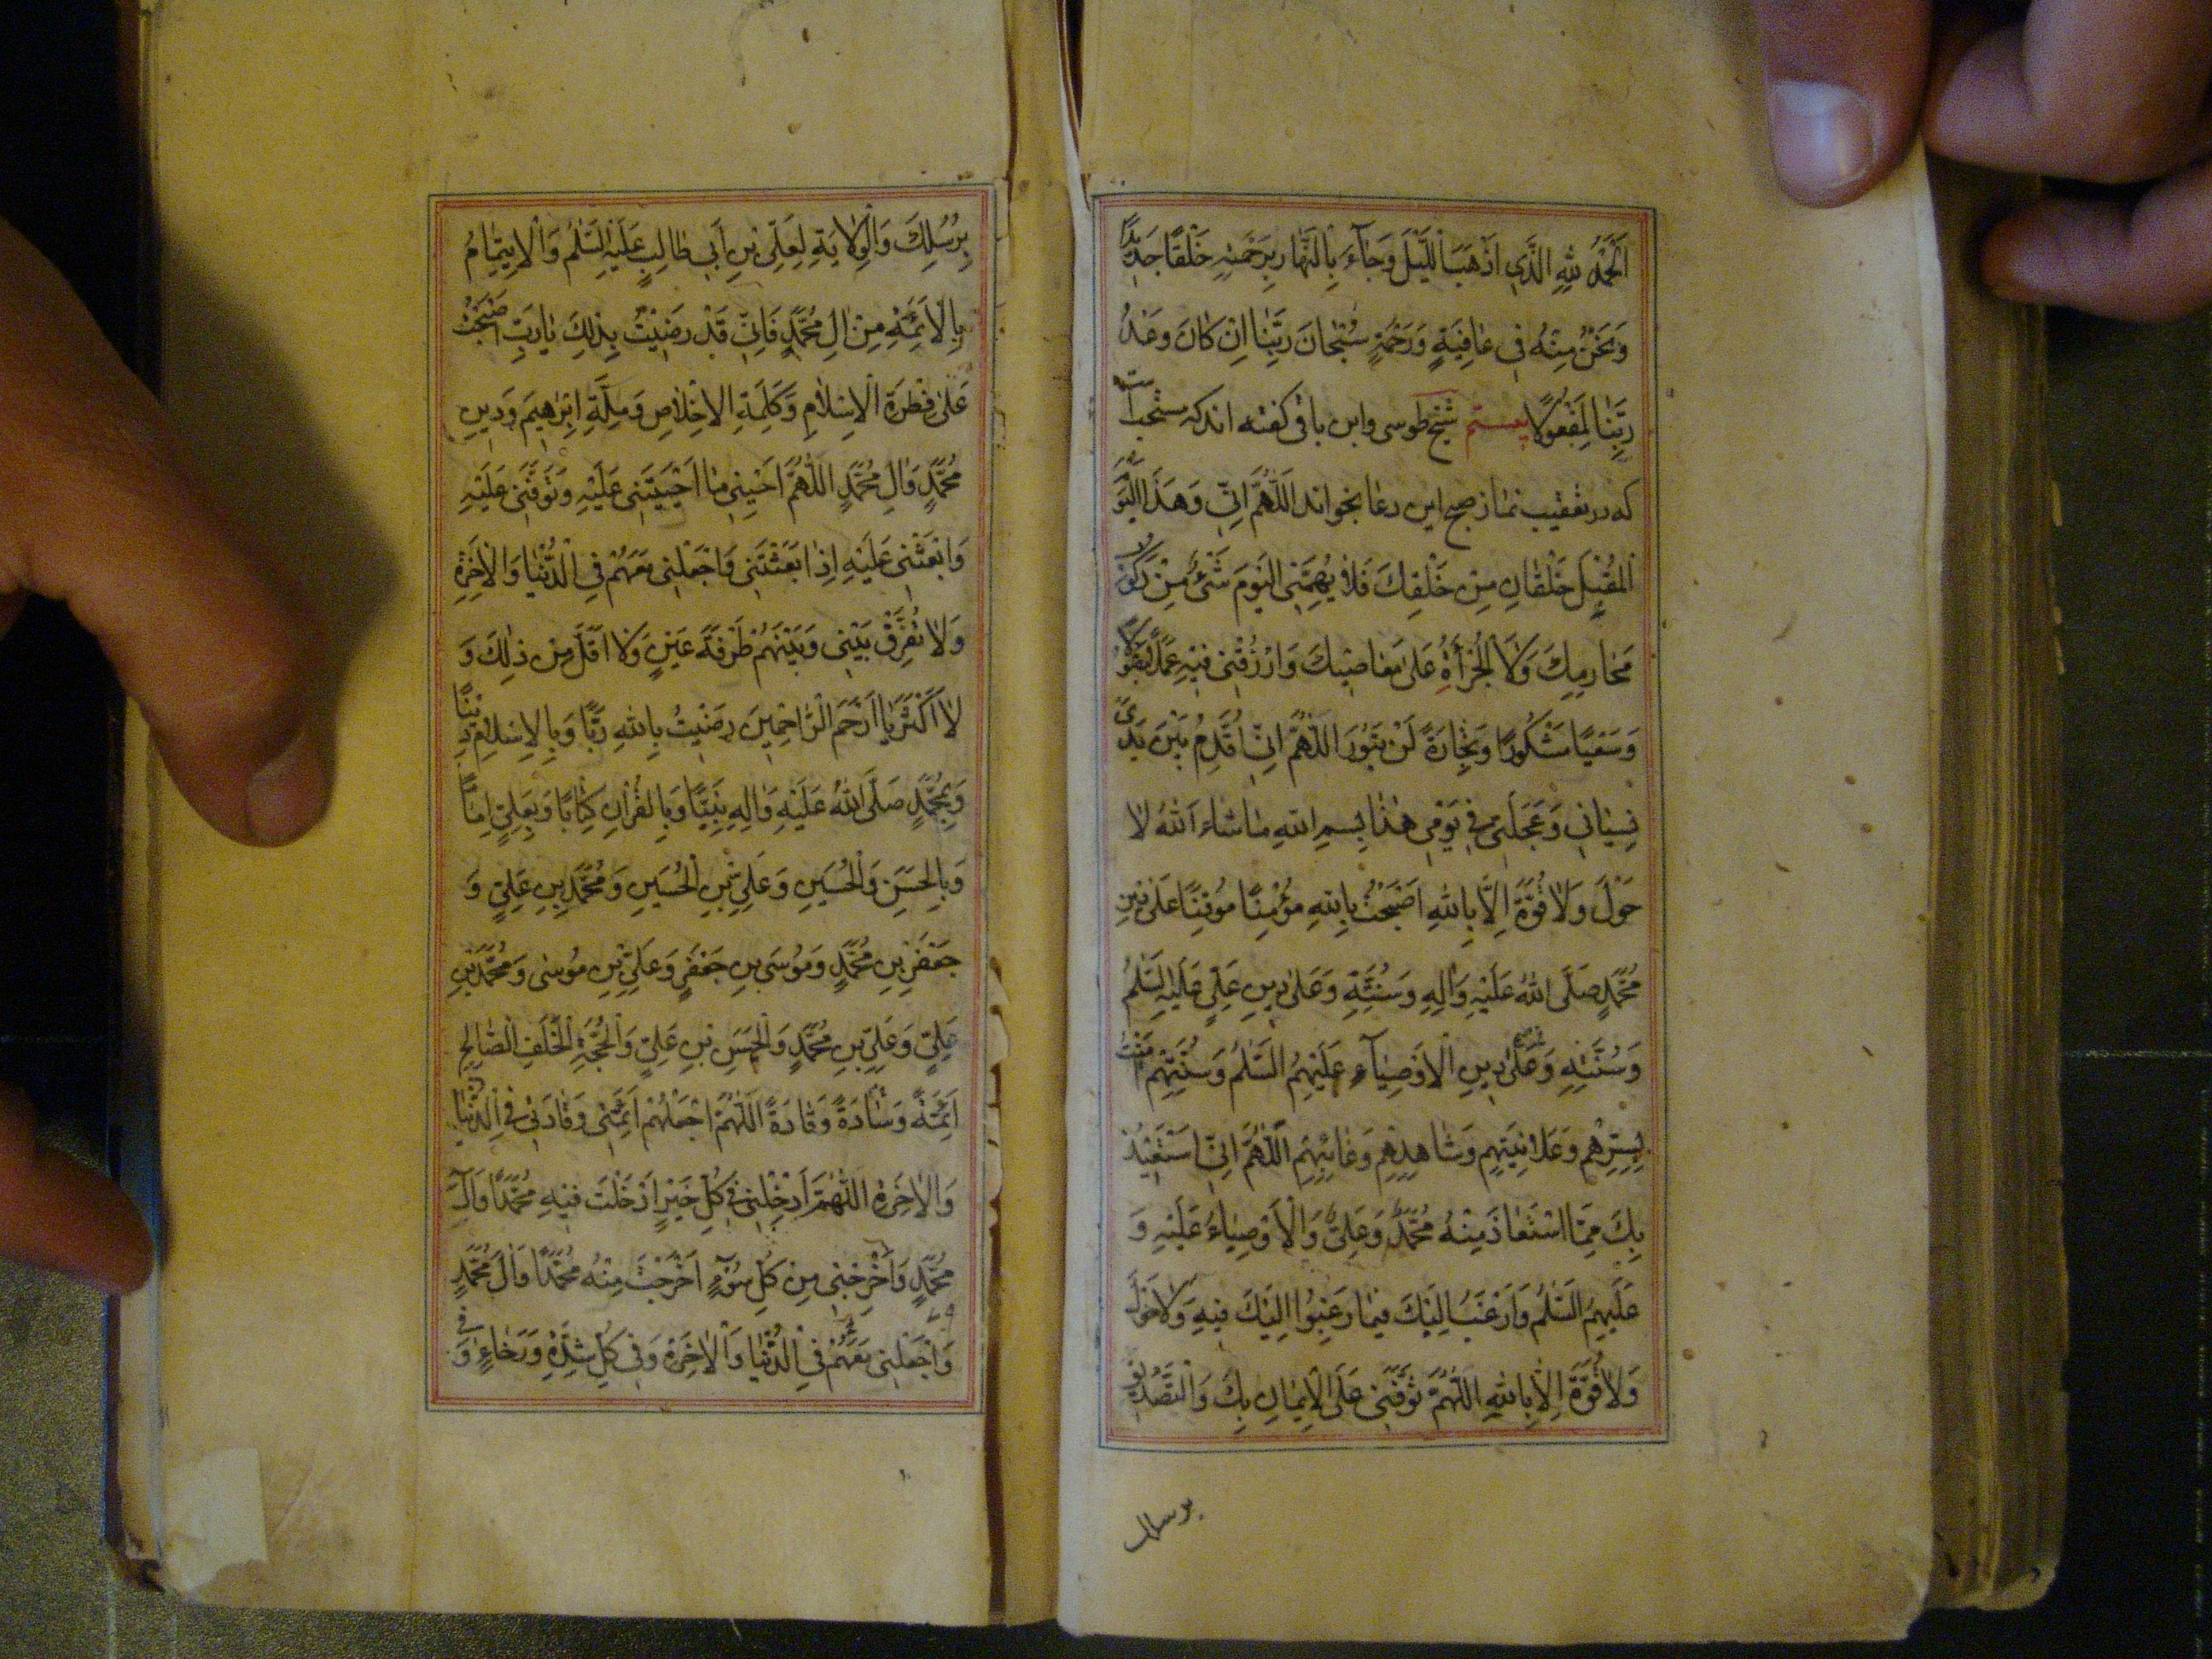 اَلْحَمْدُ لِلّٰهِ الَّذِي اَذْهَبَ اللَّيْلَ وَجَآءَ بِالنَّهارِ بِرَحْمَتِهِ خَلْقًا جَدِيدًا
وَنَحْنُ مِنْهُ فِي عَافِيَةٍ وَرَحْمَةٍ سُبْحَانَ رَبِّنَا اِنْ كَانَ وَعْدُ
رَبِّنَا لَمَفْعُولًا بیستم شیخ طوسی وابن باقی کفته اند که مستحب است
که در تعقیب نماز صبح این دعا بخواند اَللّٰهُمَّ اِنِّي وَهٰذَا الْيَوْمَ
الْمُقْبِلَ خَلْقَانِ مِنْ خَلْقِكَ فَلَا يُهِمَّنِي الْيَوْمَ شَيْءٌ مِنْ رُكُوبِ
مَحَارِمِكَ وَلَا الْجُرْأَةُ عَلٰى مَعَاصِيكَ وَارْزُقْنِي فِيهِ عَمَلًا مَقْبُولًا
وَسَعْيًا مَشْكُورًا وَتِجَارَةً لَنْ تَبُورَ اَللّٰهُمَّ اِنِّي اُقَدِّمُ بَيْنَ يَدَيْ
نِسْيَانِي وَعَجَلَتِي فِي يَوْمِي هٰذَا بِسْمِ اللهِ مَا شَاءَ اللهُ لَا
حَوْلَ وَلَا قُوَّةَ اِلَّا بِاللهِ اَصْبَحْتُ بِاللهِ مُؤْمِنًا مُوقِنًا عَلٰى دِينِ
مُحَمَّدٍ صَلَّى اللهُ عَلَيْهِ وَاٰلِهِ وَسُنَّتِهِ وَعَلٰى دِينِ عَلِيٍّ عَلَيْهِ السَّلٰمُ
وَسُنَّتِهِ وَعَلٰى دِينِ الْاَوْصِيَآءِ عَلَيْهِمُ السَّلٰمُ وَسُنَّتِهِمْ اٰمَنْتُ
بِسِرِّهِمْ وَعَلَانِيَتِهِمْ وَشَاهِدِهِمْ وَغَائِبِهِمْ اَللّٰهُمَّ اِنِّي اَسْتَعِيذُ
بِكَ مِمَّا اسْتَعَاذَ مِنْهُ مُحَمَّدٌ وَعَلِيٌّ وَالْاَوْصِيَاءُ عَلَيْهِ وَ
عَلَيْهِمُ السَّلٰمُ وَاَرْغَبُ اِلَيْكَ فِيمَا رَغِبُوا اِلَيْكَ فِيهِ وَلَا حَوْلَ
وَلَا قُوَّةَ اِلَّا بِاللهِ اَللّٰهُمَّ تَوَفَّنِي عَلَى الْاِيمَانِ بِكَ وَالتَّصْدِيقِ
برسلك
بِرُسُلِكَ وَالْوِلَايَةِ لِعَلِيِّ بْنِ اَبِي طَالِبٍ عَلَيْهِ السَّلٰمُ وَالْاِيتِمَامُ
بِالْاَئِمَّةِ مِنْ اٰلِ مُحَمَّدٍ فَاِنِّي قَدْ رَضِيْتُ بِذٰلِكَ يَا رَبِّ اَصْبَحْتُ
عَلٰى فِطْرَةِ الْاِسْلَامِ وَكَلِمَةِ الْاِخْلَاصِ وَمِلَّةِ اِبْرٰهِيمَ وَدِينِ
مُحَمَّدٍ وَاٰلِ مُحَمَّدٍ اَللّٰهُمَّ اَحْيِنِي مَا اَحْيَيْتَنِي عَلَيْهِ وَتَوَفَّنِي عَلَيْهِ
وَابْعَثْنِي عَلَيْهِ اِذَا بَعَثْتَنِي وَاجْعَلْنِي مَعَهُمْ فِي الدُّنْيَا وَالْاٰخِرَةِ
وَلَا تُفَرِّقْ بَيْنِي وَبَيْنَهُمْ طَرْفَةَ عَيْنٍ وَلَا اَقَلَّ مِنْ ذٰلِكَ وَ
لَا اَكْثَرَ يَا اَرْحَمَ الرَّاحِمِينَ رَضِيْتُ بِاللهِ رَبًّا وَبِالْاِسْلَامِ دِينًا
وَبِمُحَمَّدٍ صَلَّى اللهُ عَلَيْهِ وَاٰلِهِ نَبِيًّا وَبِالْقُرْاٰنِ كِتَابًا وَبِعَلِيٍّ اِمَامًا
وَبِالْحَسَنِ وَالْحُسَيْنِ وَعَلِيِّ بْنِ الْحُسَيْنِ وَمُحَمَّدِ بْنِ عَلِيٍّ وَ
جَعْفَرِ بْنِ مُحَمَّدٍ وَمُوسَى بْنِ جَعْفَرٍ وَعَلِيِّ بْنِ مُوسٰى وَمُحَمَّدِ بْنِ
عَلِيٍّ وَعَلِيِّ بْنِ مُحَمَّدٍ وَالْحَسَنِ بْنِ عَلِيٍّ وَالْحُجَّةِ الْخَلَفِ الصَّالِحِ
اَئِمَّةً وَسَادَةً وَقَادَةً اَللّٰهُمَّ اجْعَلْهُمْ اَئِمَّتِي وَقَادَتِي فِي الدُّنْيَا
وَالْاٰخِرَةِ اَللّٰهُمَّ اَدْخِلْنِي فِي كُلِّ خَيْرٍ اَدْخَلْتَ فِيهِ مُحَمَّدًا وَاٰلَ
مُحَمَّدٍ وَاَخْرِجْنِي مِنْ كُلِّ سُوٓءٍ اَخْرَجْتَ مِنْهُ مُحَمَّدًا وَاٰلَ مُحَمَّدٍ
وَاجْعَلْنِي مَعَهُمْ فِي الدُّنْيَا وَالْاٰخِرَةِ وَفِي كُلِّ شِدَّةٍ وَرَخَاءٍ وَفِي